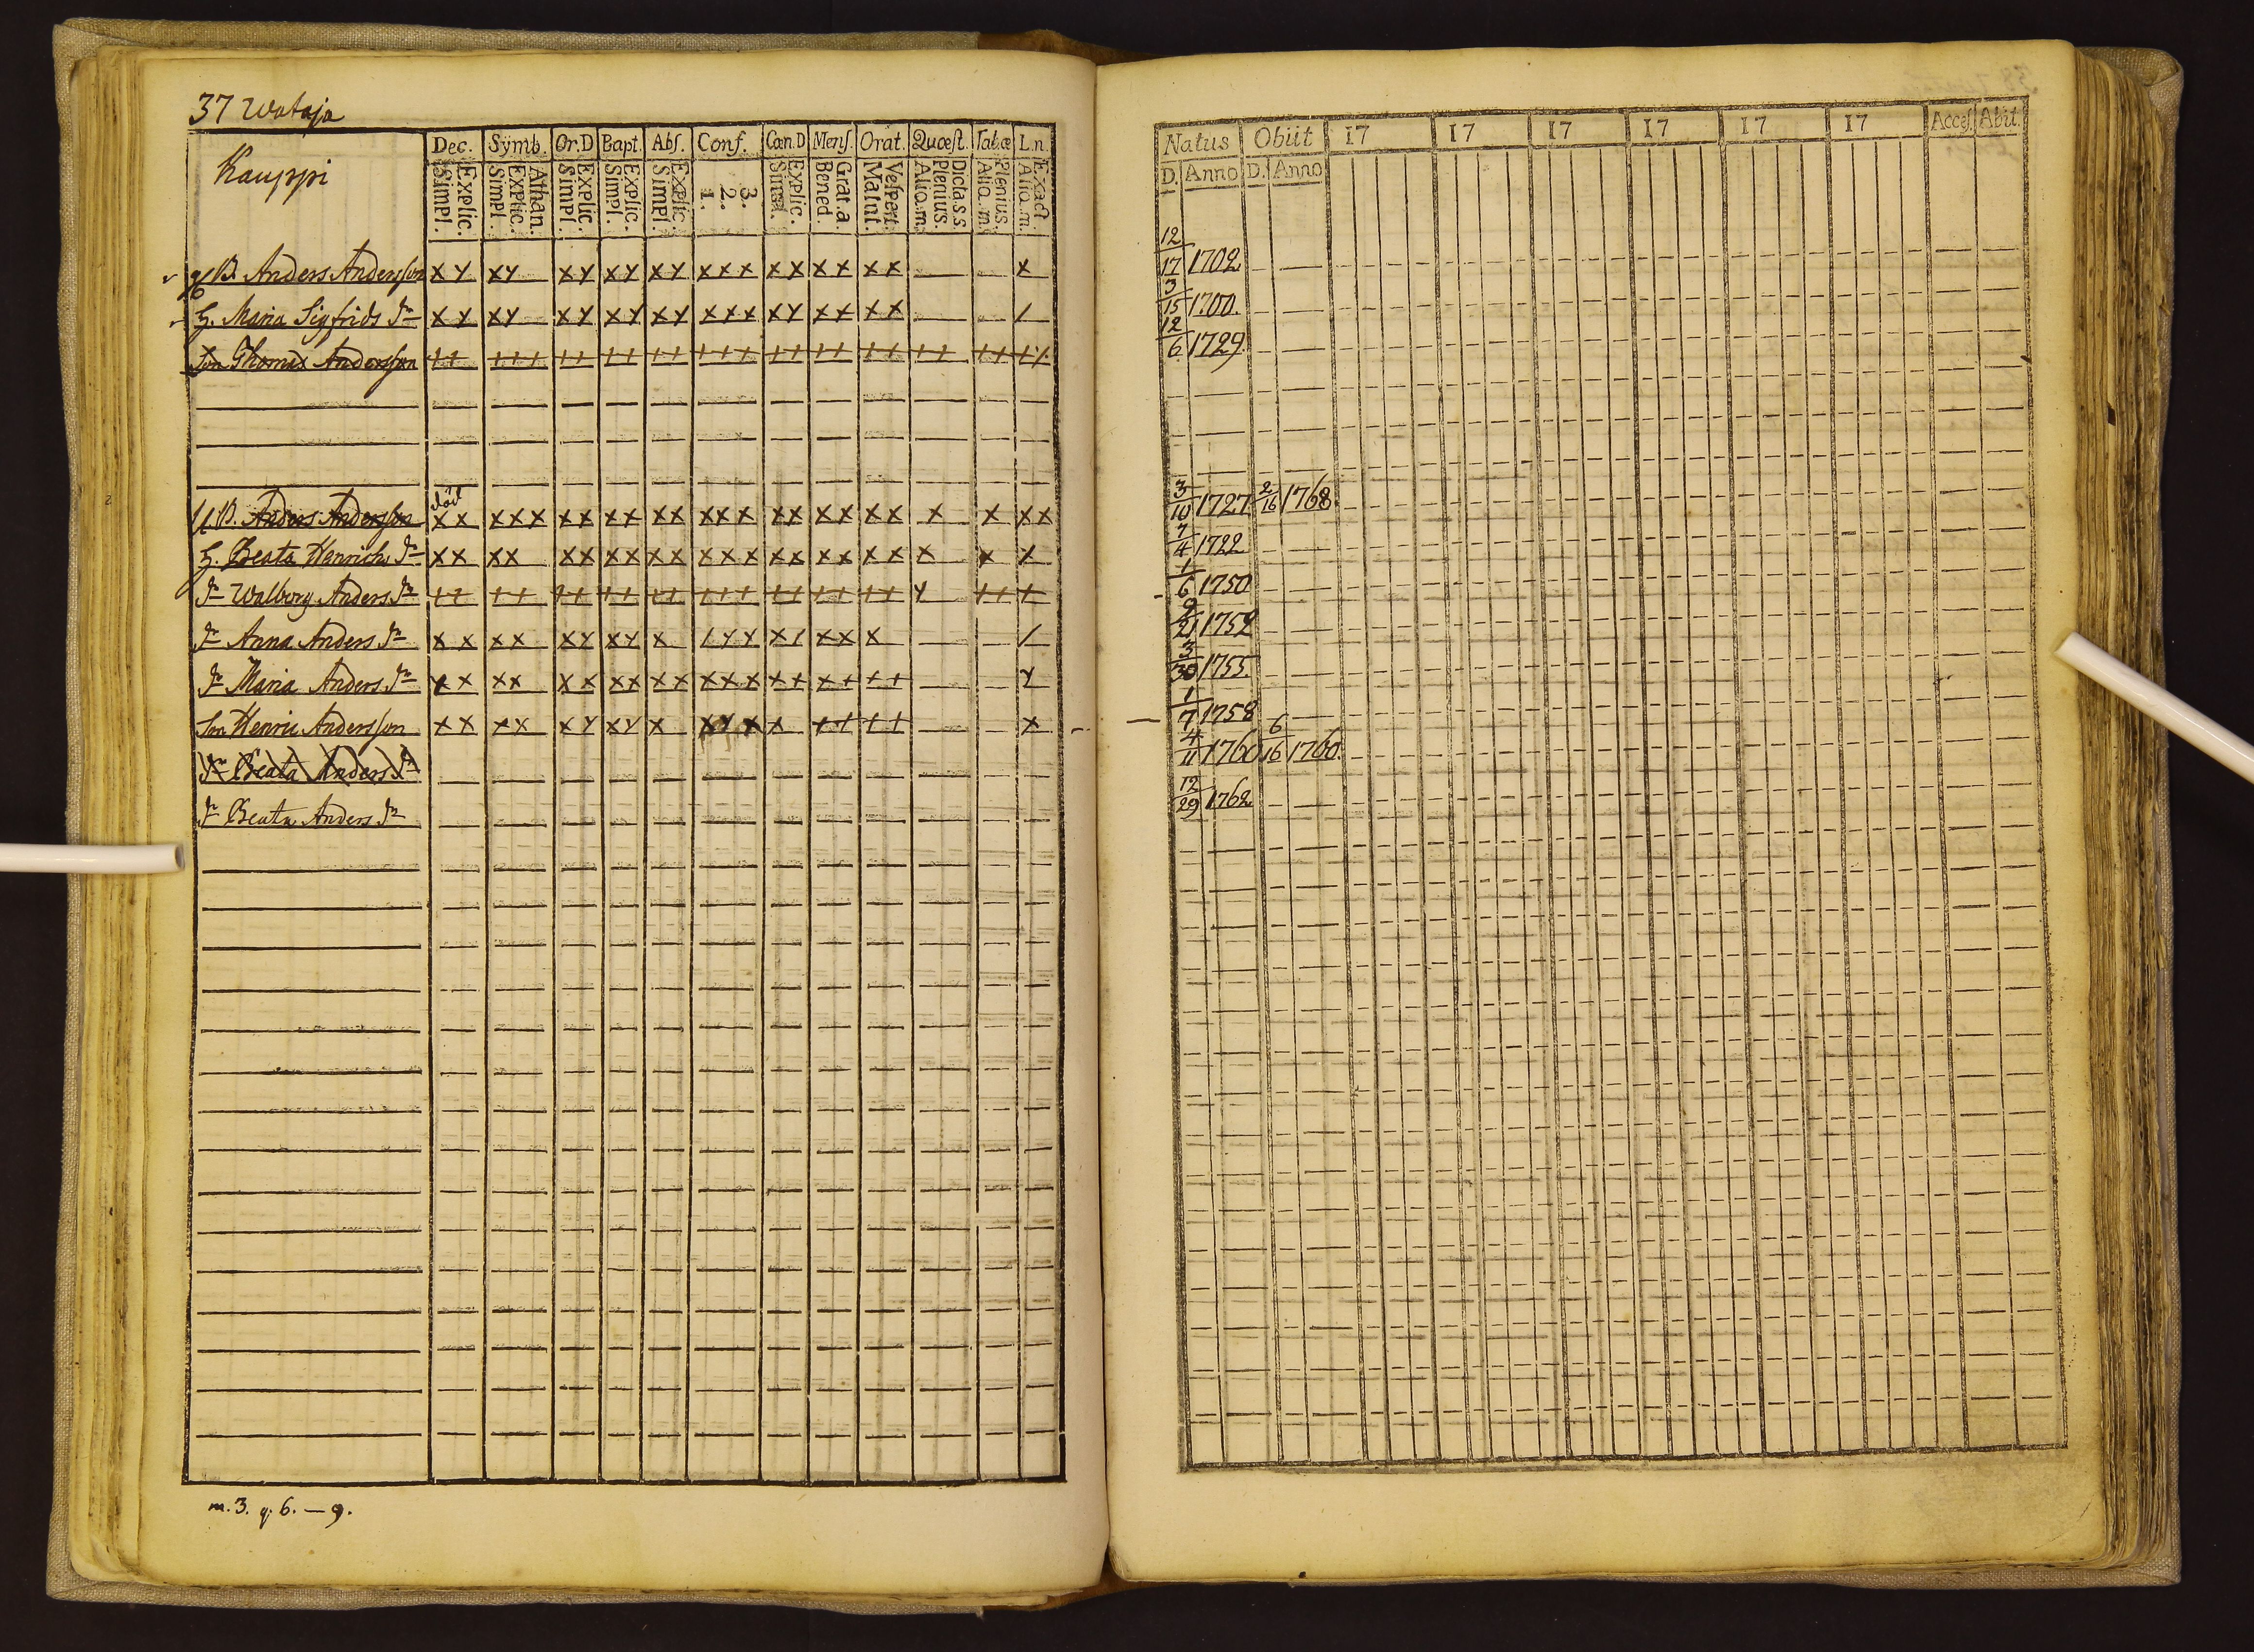 37 Wataja
Kauppi
Dec. Symb. Or.D Bapt. Abs. Conf. Cœn.D Mens. Orat. Quæst. Tab.œ L.n.
Explic. Simpl. Athan. Explic. Simpl. Explic. Simpl. Explic. Simpl. Explic. Simpl. 3. 2. 1. Explic. Simpl. Grat.a. Bened. Vespert. Matut. Dicta.s.s Plenius. Aliq.m. Plenius. Aliq.m. Exact Aliq.m.
B. Anders Andersson x y x y x y x y x y x x x x x x x x x x
H. Maria Sigfrids dr x y x y x y x y x y x x x x y x x x x /
Son Thomas Andersson
B. Anders Andersson död x x x x x x x x x x x x x x x x x x x x x x x x
H. Beata Henrichs dr x x x x x x x x x x x x x x x x x x x x x x
dr Walborg Anders dr
dr Anna Anders dr x x x x x y x y x / y y x / x x x /
dr Maria Anders dr x x x x x x x x x x x x x x x x x + + y
Son Henric Andersson x x x x x y x y x x y x x + + + + x
dr Beata Anders dr
dr Beata Anders dr
m. 3. q. 6. — 9.
Natus Obiit 17 17 17 17 17 17 Access. Abit.
D. Anno D. Anno
12/17 1702
3/15 1700.
12/6 1729
3/10 1727 2/16 1768.
7/4 1722
1/6 1750
9/21 1752
3/30 1755.
1/7 1758
4/11 1760 6/16 1760.
12/29 1762